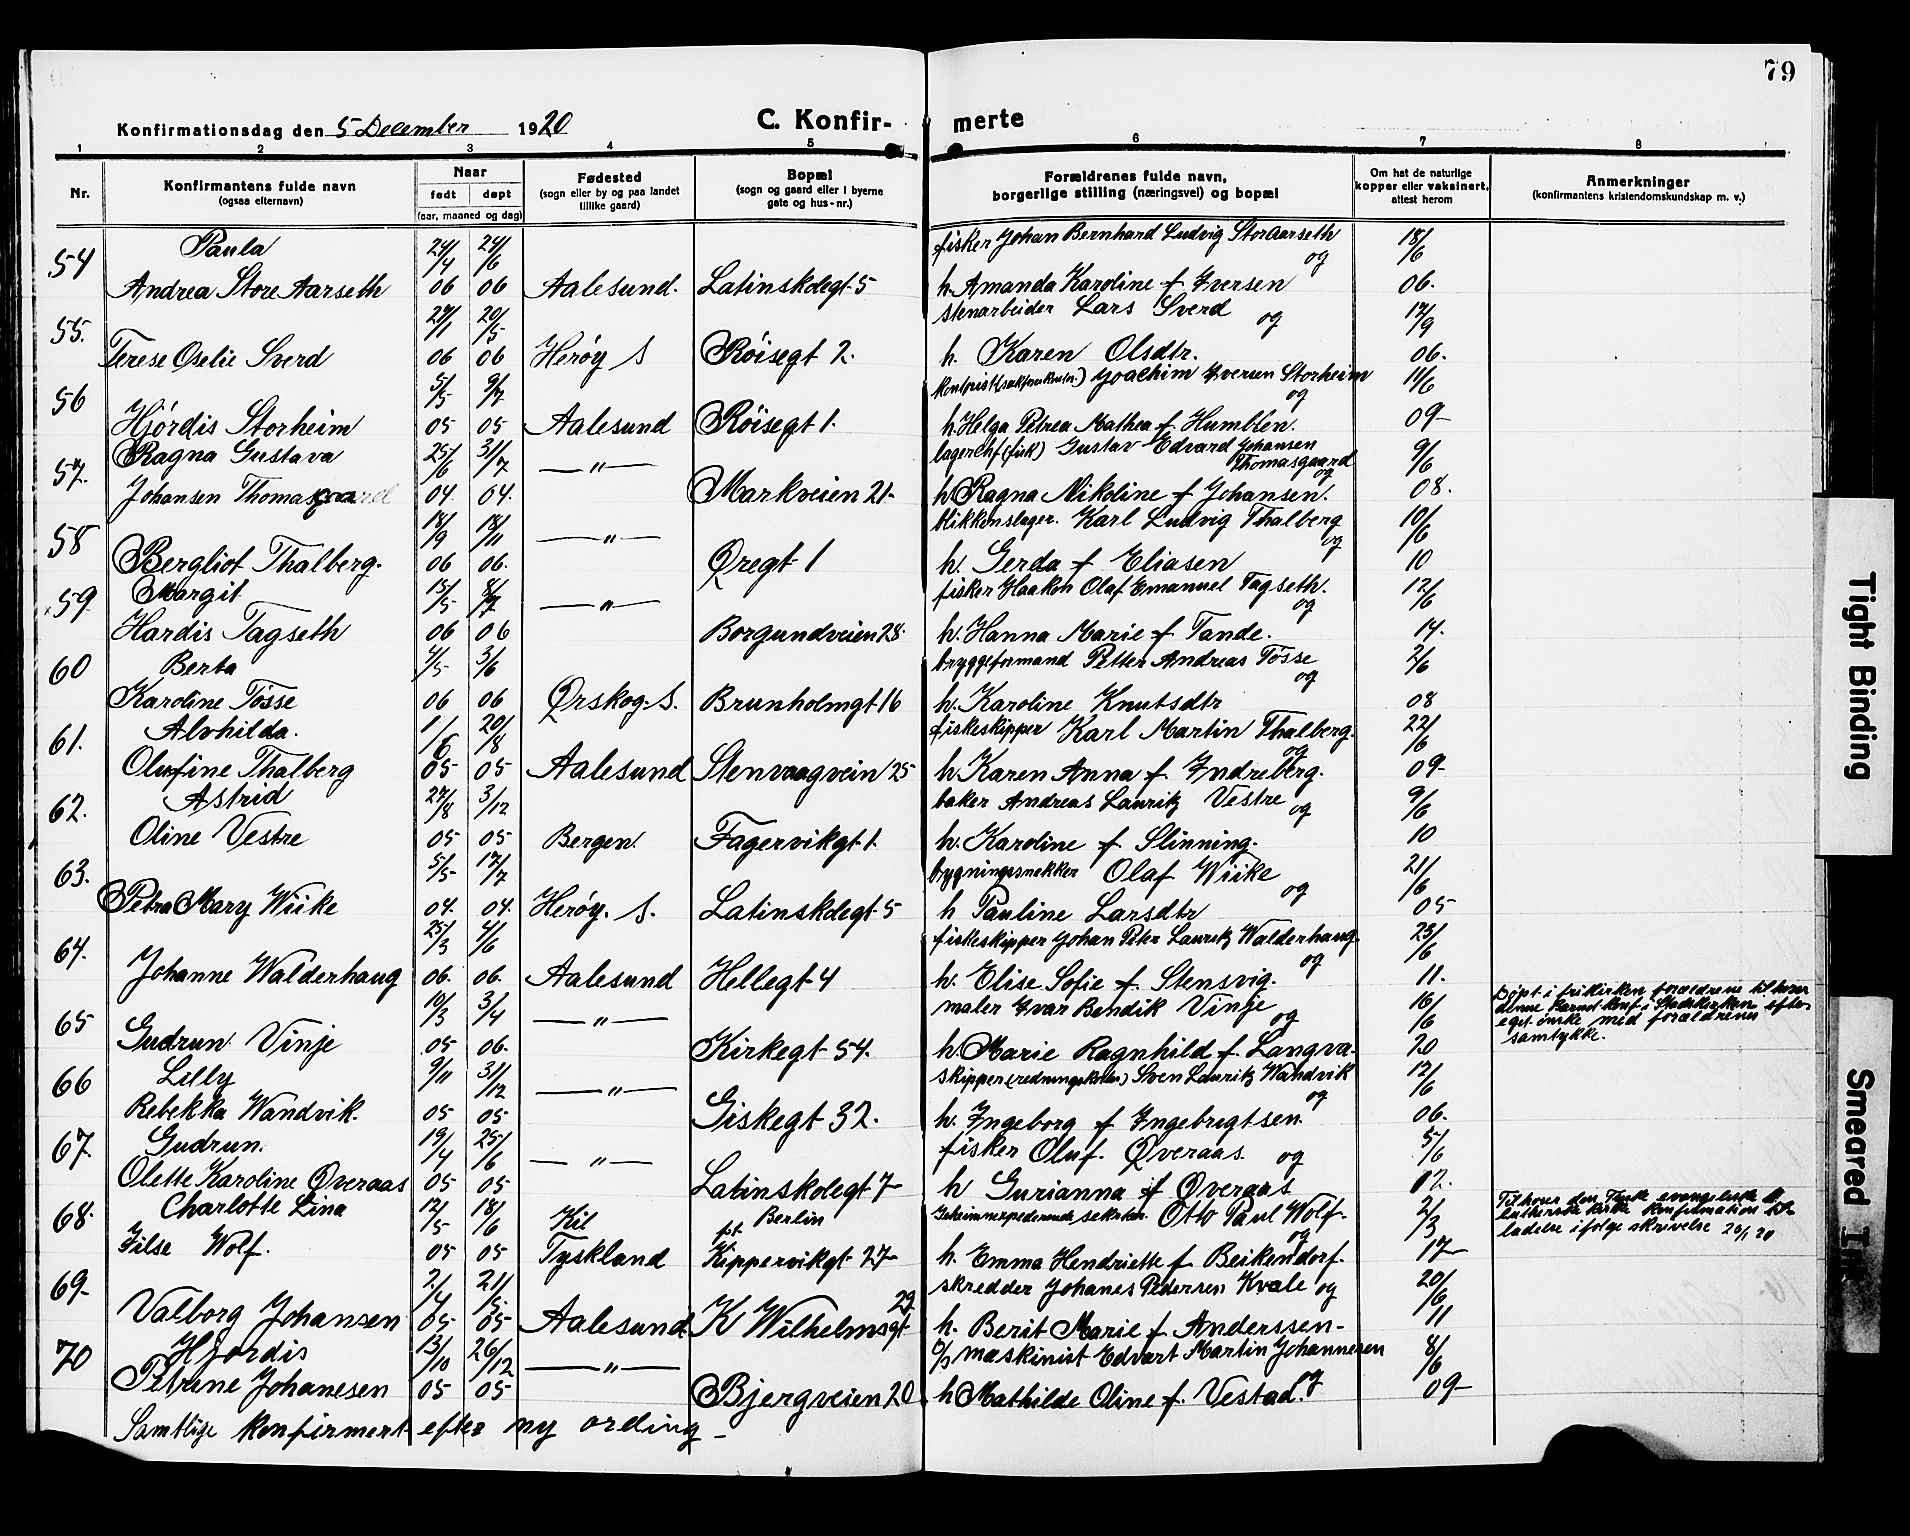 79
Konfirmationsdag den 5 December 1920 C. Konfir- merte
1 2 3 4 5 6 7 8
Nr. Konfirmantens fulde navn (ogsaa efternavn) Naar født døpt (aar, maaned og dag) Fødested (sogn eller by og paa landet tillike gaard) Bopæl (sogn og gaard eller i byerne gate og hus-nr.) Forældrenes fulde navn, borgerlige stilling (næringsvei) og bopæl Om hat de naturlige kopper eller vaksinert, attest herom Anmerkninger (konfirmantens kristendomskundskap m. v.)
54 Paula 24/4 24/6 fisker Johan Bernhard Ludvig Storaarseth og 18/6
Andrea Store Aarseth 06 06 Aalesund. Latinskolegt 5 h. Amanda Karoline f Iversen 06.
55. 29/1 20/5 stenarbeider Lars Sverd og 17/9
Terese Oselie Sverd 06 06 Herøy S Røisegt 2. h. Karen Olsdtr. 06.
56 5/5 9/7 Joachim Iversen Storheim og 11/6
Hjørdis Storheim 05 05 Aalesund Røisegt 1. h. Helga Petrea Mathea f Humblen. 09
57. Ragna Gustava 25/6 31/7 —"— Gustav Edvard Johansen Thomasgaard og 9/6
Johansen Thomasgaard 04. 04. Markveien 21. h Ragna Nikoline f Johansen. 08.
58 18/9 18/11 —"— blikkenslager. Karl Ludvig Thalberg og 10/6
Bergliot Thalberg. 06 06. Øregt 1 h. Gerda f Eliasen 10
x 59. Margit 15/5 8/7 —"— fisker Haakon Olaf Emanuel Tagseth. og 12/6
Hardis Tagseth 06 06 Borgundveien 28. h. Hanna Marie f Tande. 14.
60 Berta 4/5 3/6 bryggeformand Petter Andreas Tösse og 2/6
Karoline Tösse 06 06 Ørskog. S. Brunholmgt 16 h. Karoline Knutsdtr 08
61. Alvhilda. 1/6 20/8 fiskeskipper Karl Martin Thalberg. og 22/6
Olufine Thalberg 05 05 Aalesund Stenvaagvein 25 h Karen Anna f Indreberg. 09
62. Astrid 27/8 3/12 baker Andreas Lauritz Vestre og 9/6
Oline Vestre 05 05 Bergen. Fagervikgt 1. h. Karoline f Slinning. 10
63. 5/5 17/7 bygningssnekker Olaf Wiike og 21/6
Petra Mary Wiike 04. 04. Herøy. S. Latinskolegt 5 h Pauline Larsdtr 05
64. 25/3 4/6 fiskeskipper Johan Peter Lauritz Walderhaug. og 23/6
Johanne Walderhaug 06. 06. Aalesund Hellegt 4 h. Elise Sofie f Stensvig. 11.
65 10/3 3/4 —"— maler Ivar Bendik Vinje og 16/6 Döpt i frikirken forældrene tilhører
denne Barnet konf. i Stadskirken efter
eget ønske med forældrenes
samtykke.
Gudrun Vinje 05 06. Kirkegt 54. h. Marie Ragnhild f. Langva. 20
66 Lilly 9/11 31/12 —"— Sven Lauritz Wandvik og 12/6
Rebekka Wandvik. 05 05 Giskegt 32. h. Ingeborg f Ingebrigtsen. 06.
67. Gudrun. 19/4 25/6 —"— fisker Oluf. Øveraas og 5/6
Olette Karoline Øveraas 05 05 Latinskolegt 7 h Gurianna f Øveraas 02.
68. Charlotte Lina 12/5 18/6 Kil pt Berlin Otto Paul Wolf. og 2/3 Tilhører den Tyske evangeliske
lutherske kirke konfirmation til-
ladelse ifølge skrivelse 20
Ilse Wolf. 05 05 Tyskland Kippervikgt 27 h. Emma Hendriette f Beikendorf. 17
69. 2/4 21/5 skredder Johanes Pedersen Kvale og 20/6
Valborg Johansen 05 05 Aalesund K Wilhelmsgt 29. h. Berit Marie f Anderssen 11
70 Hjørdis 13/10 26/12 —"— maskinist Edvart Martin Johannesen og 8/6
Petrine Johanesen 05 05 Bjergveien 20 h Mathilde Oline f. Vestad. 09
Samtlige konfirmert efter ny ording
Tight Binding
Smeared